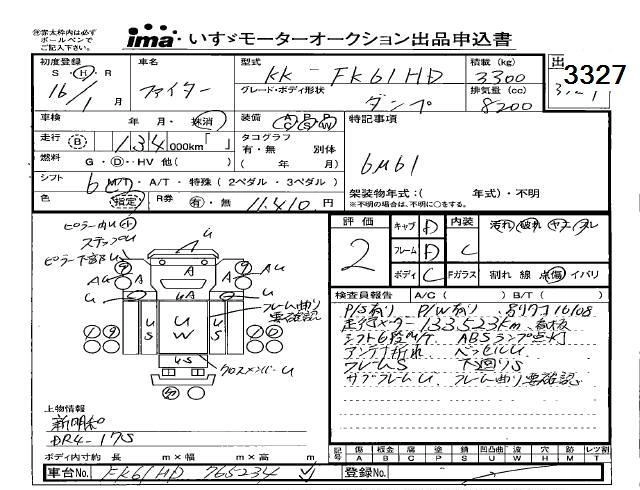 ㊟赤太枠内は必ず
ボールペンで
ご記入下さい。
ima いすゞモーターオークション出品申込書
初度登録 S・H・R 16/1月
車名 ファイター
型式 KK-FK61HD
積載 (kg) 3300
グレード・ボディ形状 ダンプ
排気量 (cc) 8200
3327
車検 年 月・抹消
装備 A P W
特記事項
走行 B 134,000km「 」
タコグラフ 有・無 別体 ( 年 月)
6M61
燃料 G・D・HV 他( )
シフト 6 M/T・A/T・特殊(2ペダル・3ペダル)
架装物年式:( 年式)・不明
※不明の場合は、不明に○をする。
色 指定 R券 有・無 11,410 円
評価 2
キャブ D
フレーム D
ボディ C
内装 C 汚れ 破れ ヤニ スレ
Fガラス 割れ 線 点傷 イバリ
ピラー内U 小
ステップU
ピラー下部U
フレーム曲り
要確認
クロスメンバーU
検査員報告 A/C( ) B/T( )
P/S有り P/W有り
走行メーター133,523km
シフト6段M/T ABSランプ点灯
アンテナ折れ ベッセルU
フレームS 下廻りS
サブフレームU フレーム曲り要確認
上物情報
新明和
DR4-17S
ボディ内寸約 長 m×幅 m×高 m
記号 傷 A 板金 B 腐 C 塗 P 錆 S 凹凸曲 U 波 W 穴 H 跡 M レツ割 T
車台No. FK61HD 765234
登録No.